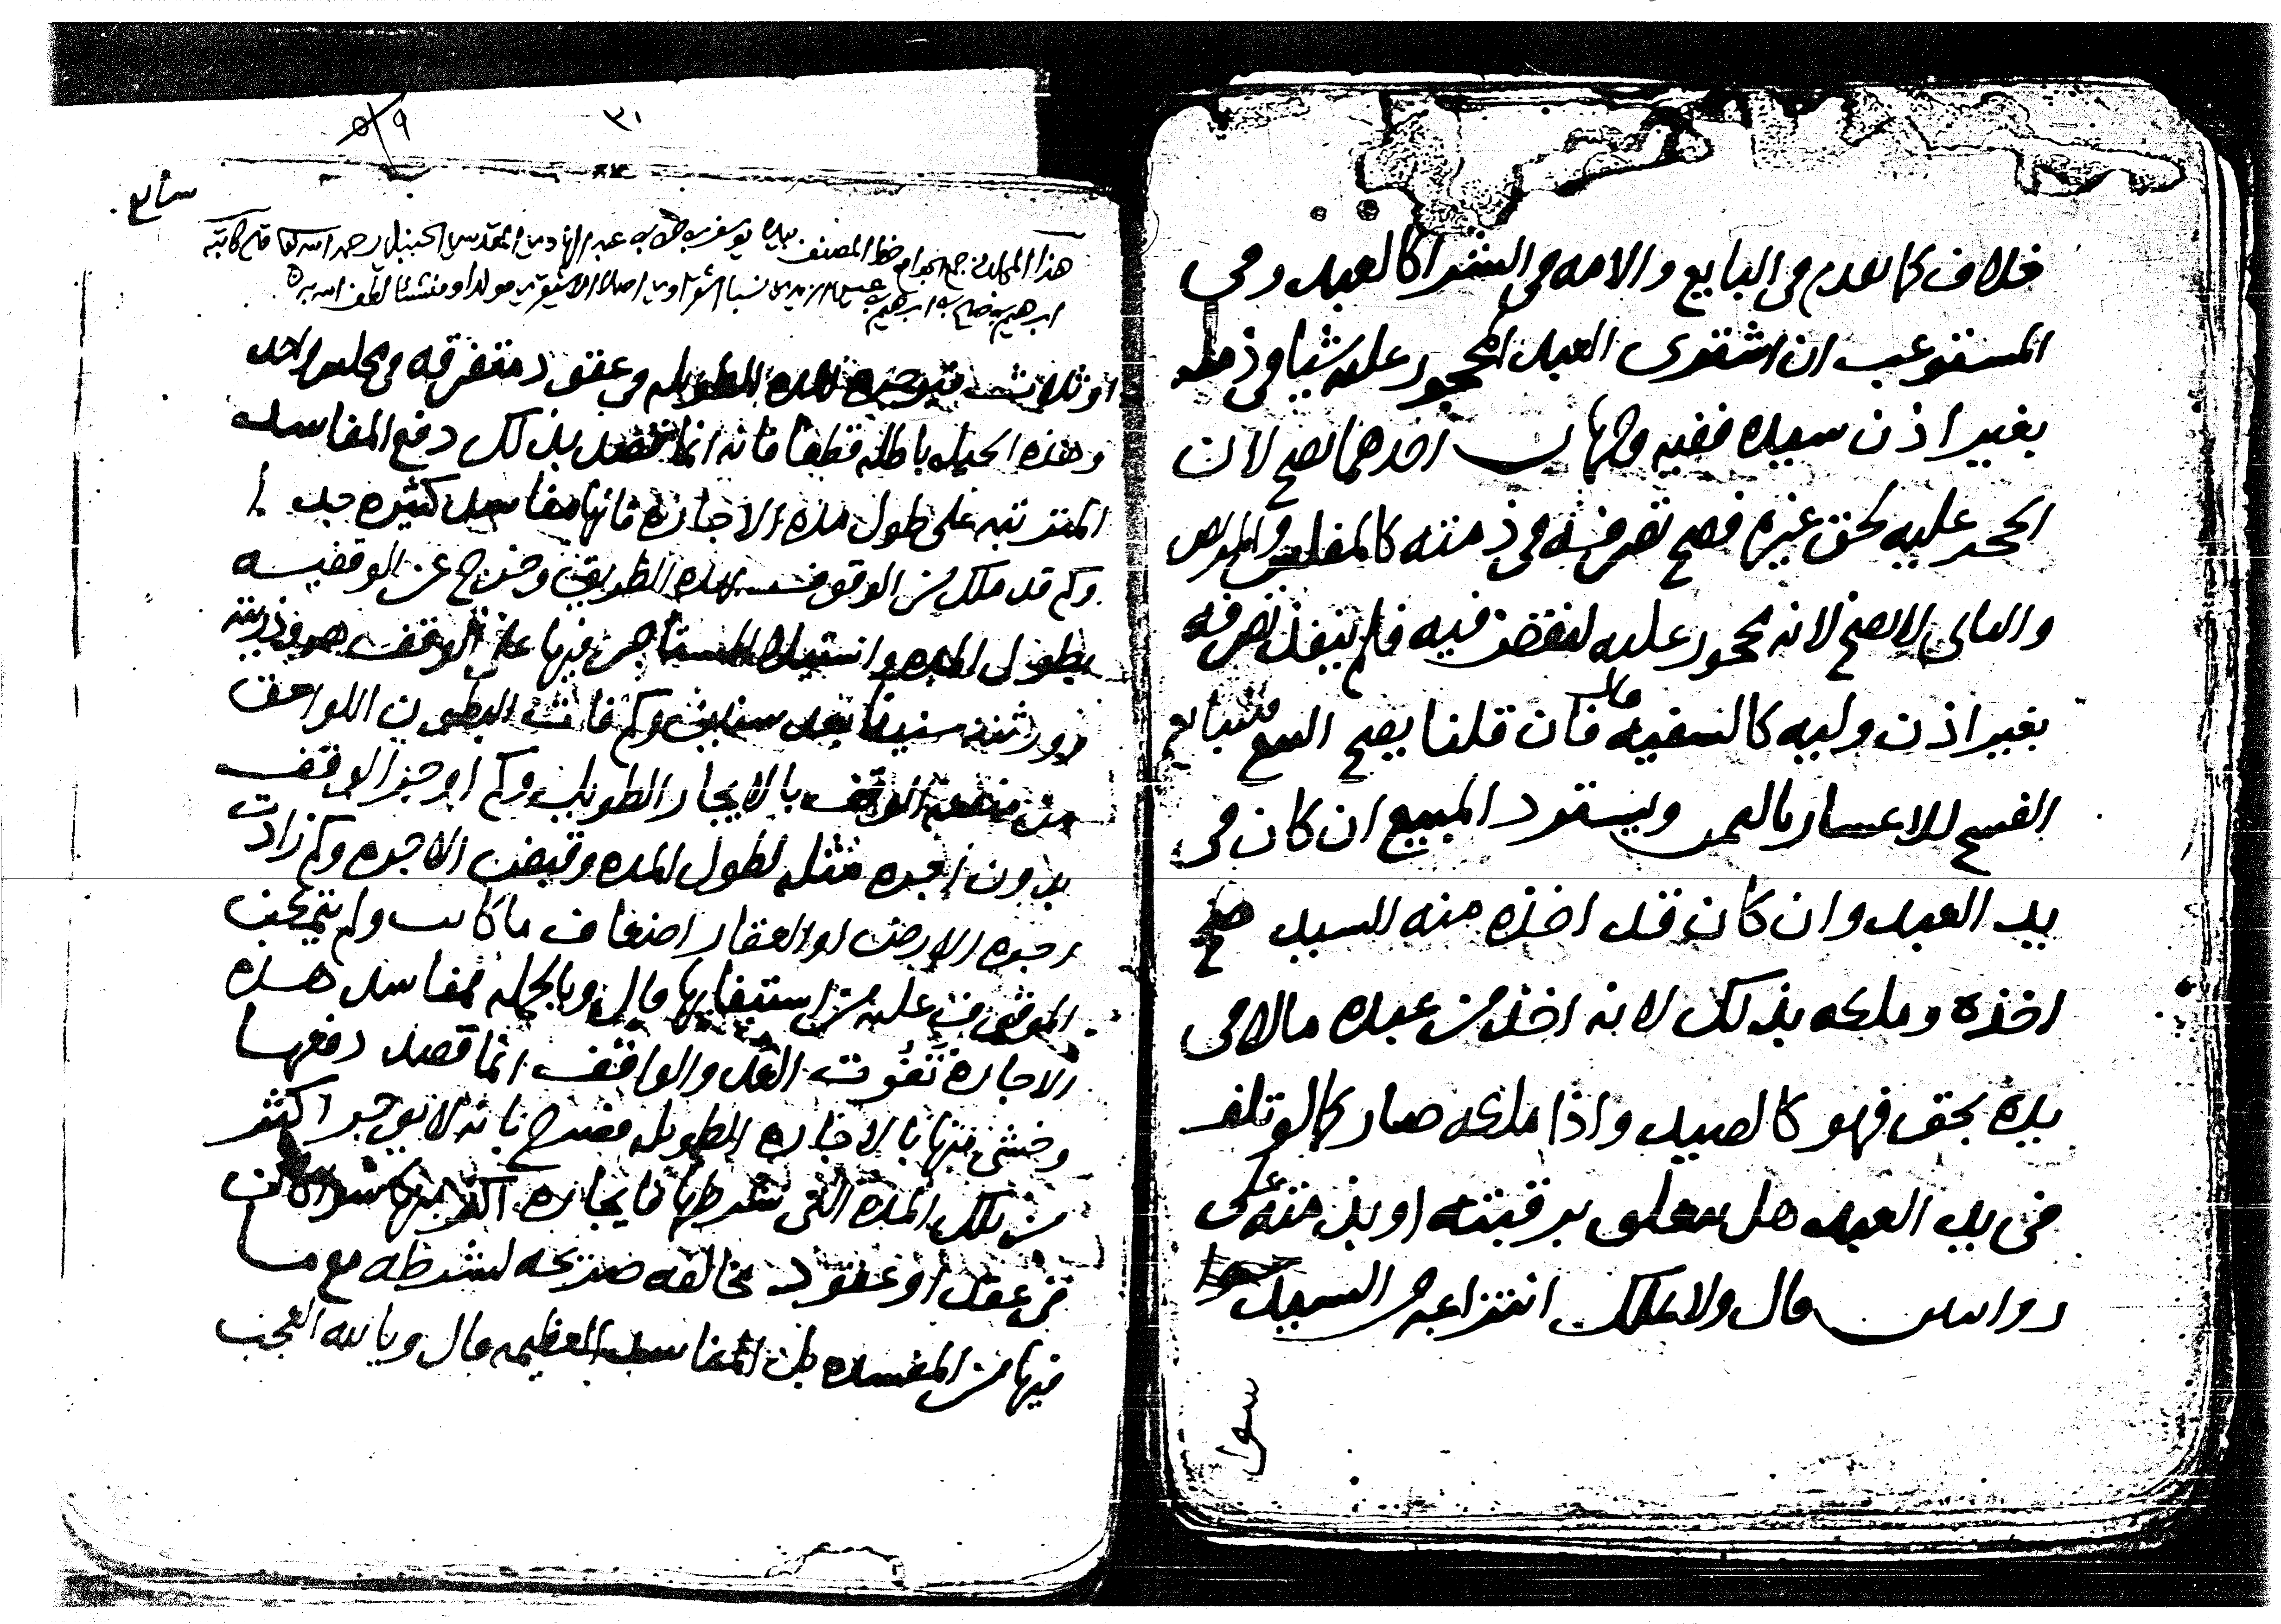 خلاف كما تقدم في البايع والامه في الشرا كالعبد وفي
المستوعب ان اشترى العبد المحجور عليه شيا في ذمته
بغير اذن سيده ففيه وجهان احدهما يصح لان
الحجر عليه لحق غيره فصح تصرفه في ذمته كالمفلس والمريض
والثاني لا يصح لانه محجور عليه لنقص فيه فلم ينفذ تصرفه
بغير اذن وليه كالسفيه قال فان قلنا يصح البيع فللبايع
الفسخ للاعسار بالثمن ويسترد المبيع ان كان في
يد العبد وان كان قد اخذه منه السيد صح
اخذه وملكه بذلك لانه اخذ من عبده مالا في
يده بحق فهو كالصيد واذا ملكه صار كما لو تلف
في يد العبد هل يتعلق برقبته او بذمته على
روايتين قال ولا يملك انتزاعه من السيد
سوا
٣٠
٩
هذا المجلد من جمع الجوامع خط المصنف بيده يوسف بن عبد الهادي المقدسي الحنبلي رحمه الله تعالى قاله كاتبه
ابراهيم بن صالح بن ابراهيم بن عيسى نسبا اصلا الاشيقري مولدا ومنشئا لطف الله به
او ثلاث المده الطويله في عقود متفرقه في مجلس واحد
وهذه الحيله باطله قطعا فانه انما قصد بذلك دفع المفاسد
المترتبه على طول مده الاجازه فانها مفاسد كثيره جدا
وكم قد ملك من الوقوف بهذه الطريق وخرج عن الوقفيه
بطول المده واستيلا المستاجر فيها على الوقف هو وذريته
وورثته سنينا بعد سنين وكم فات البطون اللواحق
من منفعه الوقف بالايجار الطويل وكم اوجر الوقف
بدون اجره مثله لطول المده وقبض الاجره وكم زادت
اجره الارض او العقار اضعاف ما كانت ولم يتمكن
الموقوف عليه من استيفايها قال وبالجمله فمفاسد هذه
الاجاره تفوت العد والواقف انما قصد دفعها
وخشي منها بالاجاره الطويله فصرح بانه لا يوجر اكثر
من تلك المده التي شرطها فايجاره اكثر منها سوا كان
في عقد او عقود مخالفه صريحه لشرطه مع ما
فيها من المفسده بل المفاسد العظيمه قال ويا لله العجب